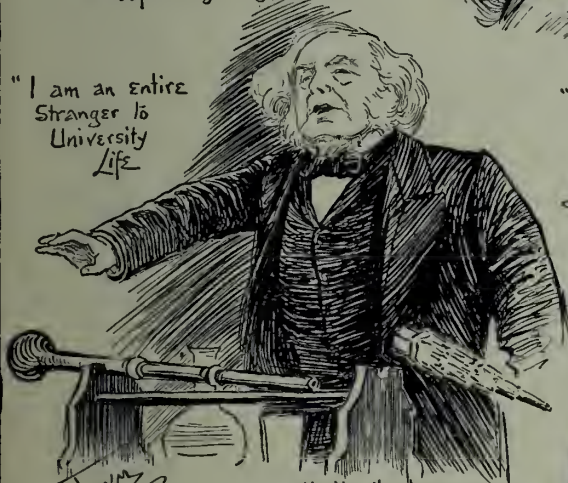 "I am an Entire
Stranger to
University
Life